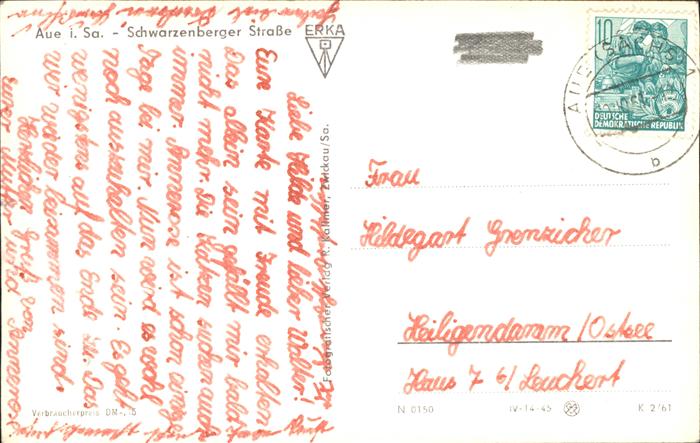 Aue i. Sa. - Schwarzenberger Straße
ERKA
10
DEUTSCHE
DEMOKRATISCHE REPUBLIK
AUE (SACHS) 1
b
Liebe Hilde und lieber Walter!
Eure Karte mit Freude erhalten
Das allein sein gefällt mir bald
nicht mehr. Die Katzen
immer. Annerose ist schon einige
Tage bei mir. Nun wird es wohl
noch auszuhalten sein. Es geht
wenigstens auf das Ende zu. Das
wir wieder beisammen sind.
Herzlichen Gruß von
Eurer Mutter und Annerose
Fotografischer Verlag R. Kallmer, Zwickau/Sa.
Frau
Hildegart Grenzicher
Heiligendamm /Ostsee
Haus 7 b/ Leuchert
Verbraucherpreis DM -,15
N 0150
IV-14-45
K 2/61